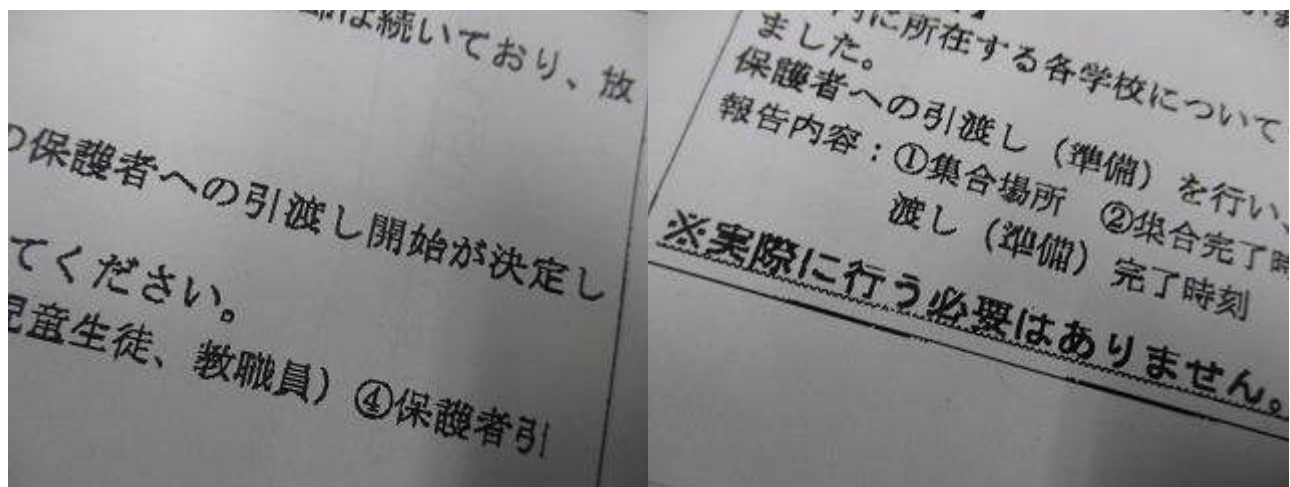 は続いており、放
の保護者への引渡し開始が決定し
てください。
児童生徒、教職員）④保護者引
内に所在する各学校について
ました。
保護者への引渡し（準備）を行い、
報告内容：①集合場所　②集合完了時
渡し（準備）完了時刻
※実際に行う必要はありません。